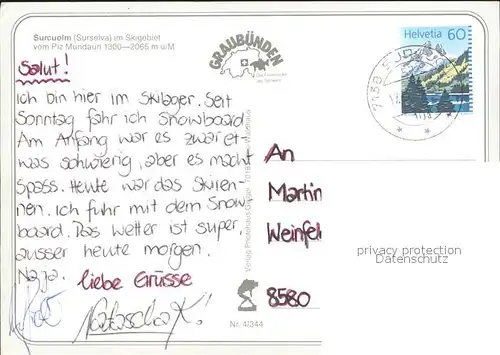 Surcuolm (Surselva) im Skigebiet
vom Piz Mundaun 1300–2065 m ü/M
Salut!
Ich bin hier im Skilager. Seit
Sonntag fahr ich Snowboard
Am Anfang war es zwar et-
was schwierig, aber es macht
Spass. Heute war das Skiren-
nen. Ich fuhr mit dem Snow
board. Das Wetter ist super,
ausser heute morgen.
Naja.
liebe Grüsse
Natascha K.!
GRAUBÜNDEN
Helvetia 60
7138
An
Martin
Weinfel
8580
privacy protection
Datenschutz
Nr. 4/344